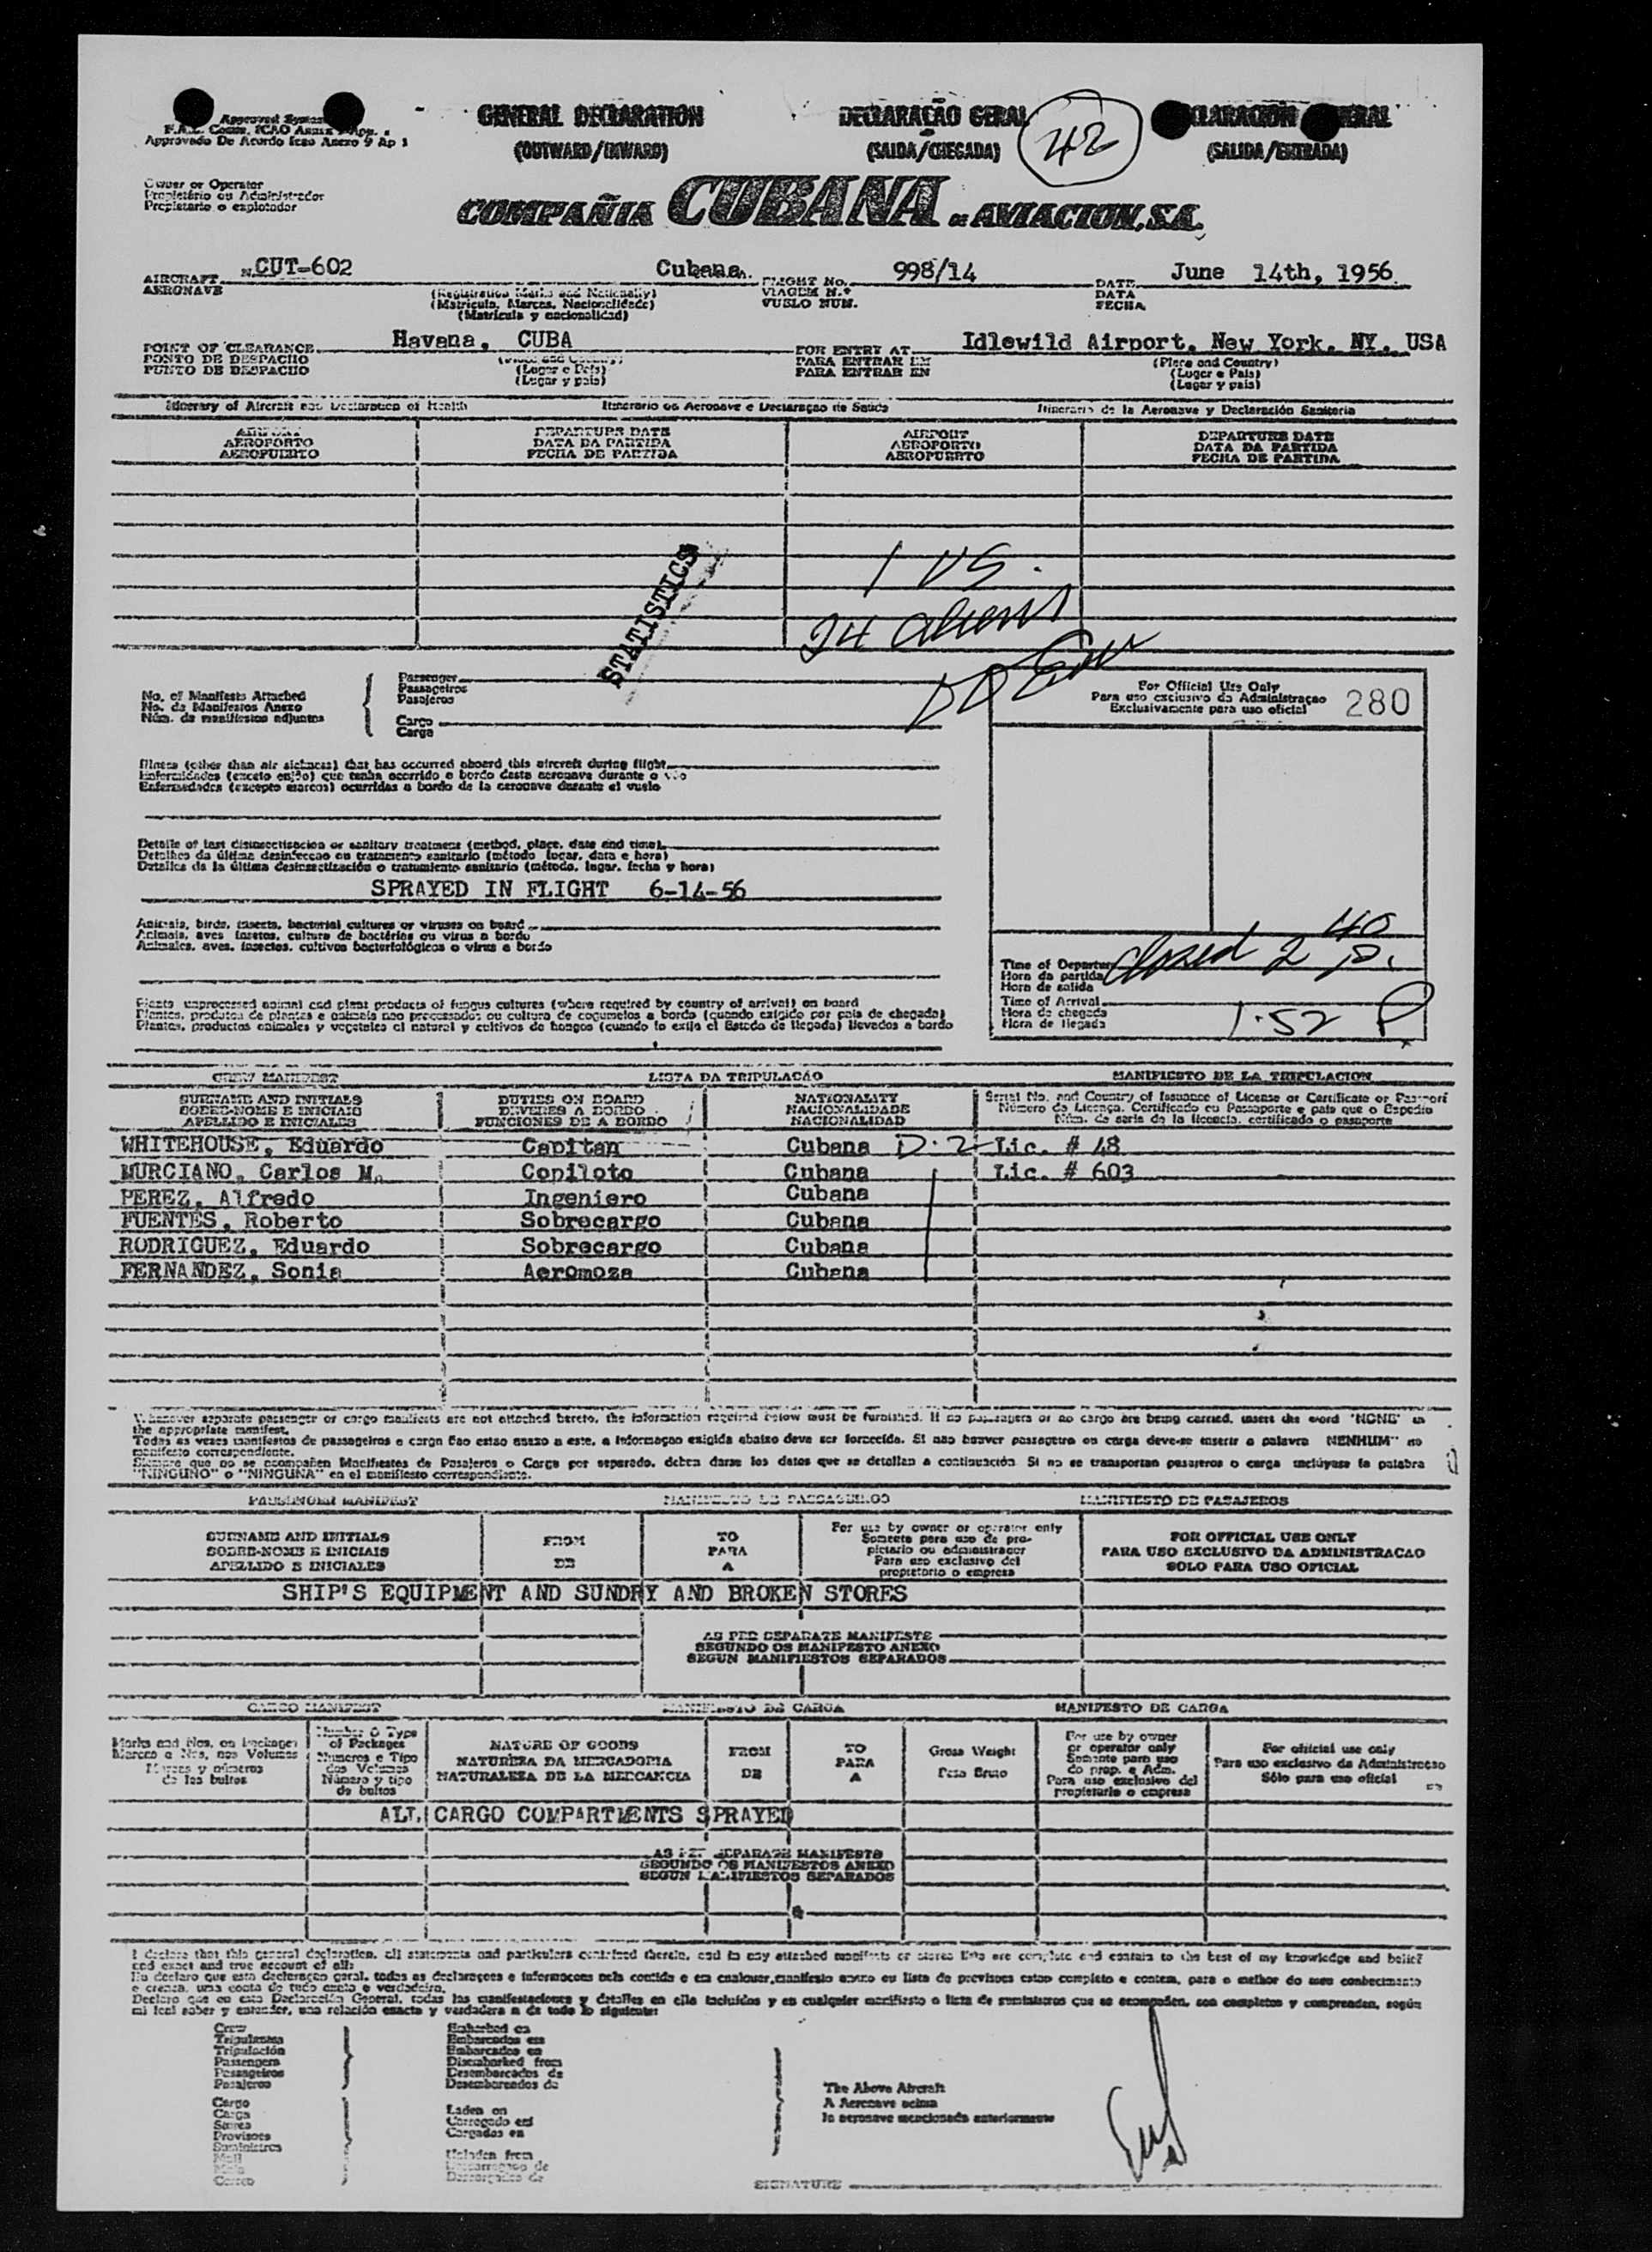 Approved System
F.A.L. Comm. ICAO Annex 9 App. 1
Approvado De Acordo Icao Anexo 9 Ap 1
GENERAL DECLARATION
(OUTWARD/INWARD)
DECLARAÇÃO GERAL
(SAIDA/CHEGADA)
42
DECLARACIÓN GENERAL
(SALIDA/ENTRADA)
Owner or Operator
Propietário ou Administrador
Propietario o explotador
COMPAÑIA CUBANA DE AVIACION, S.A.
AIRCRAFT N. CUT-602 Cubana. FLIGHT No. 998/14 DATE June 14th, 1956.
AERONAVE (Registration Marks and Nationality) VIAGEM N.º DATA
(Matricula, Marcas, Nacionalidade) VUELO NUM. FECHA
(Matricula y nacionalidad)
POINT OF CLEARANCE Havana, CUBA FOR ENTRY AT Idlewild Airport, New York, NY. USA
PONTO DE DESPACHO (Place and Country) PARA ENTRAR EM (Place and Country)
PUNTO DE DESPACHO (Lugar e Pais) PARA ENTRAR EN (Lugar e Pais)
(Lugar y pais) (Lugar y pais)
Itinerary of Aircraft and Declaration of Health Itinerario da Aeronave e Declaraçao de Saude Itinerario de la Aeronave y Declaración Sanitaria
AIRPORT DEPARTURE DATE AIRPORT DEPARTURE DATE
AEROPORTO DATA DA PARTIDA AEROPORTO DATA DA PARTIDA
AEROPUERTO FECHA DE PARTIDA AEROPUERTO FECHA DE PARTIDA
STATISTICS
1 US.
24 aliens
No. of Manifests Attached
No. de Manifestos Anexo
Núm. de manifiestos adjuntos
Passenger
Passageiros
Pasajeros
Cargo
Carga
For Official Use Only
Para uso exclusivo da Administraçao
Exclusivamente para uso oficial
280
Illness (other than air sickness) that has occurred aboard this aircraft during flight
Enfermidades (exceto enjôo) que tenha ocorrido a bordo desta aeronave durante o vôo
Enfermedades (excepto mareos) ocurridas a bordo de la aeronave durante el vuelo
Details of last disinsectisacion or sanitary treatment (method, place, date and time)
Detalhes da última desinfeccao ou tratamento sanitario (método, locar, data e hora)
Detalles de la última desinsectización o tratamiento sanitario (método, lugar, fecha y hora)
SPRAYED IN FLIGHT 6-14-56
Animals, birds, insects, bacterial cultures or viruses on board
Animais, aves insetos, cultura de bactérias ou virus a bordo
Animales, aves, insectos, cultivos bacteriológicos o virus a bordo
Time of Departure Closed 2 40 p.
Hora da partida
Hora de salida
Time of Arrival
Hora de chegada 1:52 P
Hora de llegada
Plants, unprocessed animal and plant products of fungus cultures (where required by country of arrival) on board
Plantes, produtos de plantas e animais nao processados ou cultura de cogumelos a bordo (quando exigido por pais de chegada)
Plantas, productos animales y vegetales al natural y cultivos de hongos (cuando lo exija el Estado de llegada) llevados a bordo
CREW MANIFEST LISTA DA TRIPULACÁO MANIFIESTO DE LA TRIPULACION
SURNAME AND INITIALS DUTIES ON BOARD NATIONALITY Serial No. and Country of Issuance of License or Certificate or Passport
SOBRE-NOME E INICIAIS DEVERES A BORDO NACIONALIDADE Número da Licença, Certificado ou Passaporte e pais que o Expedio
APELLIDO E INICIALES FUNCIONES DE A BORDO NACIONALIDAD Núm. de serie de la licencia, certificado o pasaporte
WHITEHOUSE, Eduardo Capitan Cubana D-2 Lic. # 48
MURCIANO, Carlos M. Copiloto Cubana Lic. # 603
PEREZ, Alfredo Ingeniero Cubana
FUENTES, Roberto Sobrecargo Cubana
RODRIGUEZ, Eduardo Sobrecargo Cubana
FERNANDEZ, Sonia Aeromoza Cubana
Whenever separate passenger or cargo manifests are not attached hereto, the information required below must be furnished. If no passagers or no cargo are being carried, insert the word "NONE" in
the appropriate manifest.
Todas as vezes manifestos de passageiros e carga nao estao anexo a este, a informaçao exigida abaixo deve ser fornecida. Si nao houver passageiro ou carga deve-se inserir a palavra NENHUM" no
manifesto correspondiente.
Siempre que no se acompañen Manifiestos de Pasajeros o Carga por separado, deben darse los datos que se detallan a continuación. Si no se transportan pasajeros o carga inclúyase la palabra
"NINGUNO" o "NINGUNA" en el manifiesto correspondiente.
PASSENGER MANIFEST MANIFESTO DE PASSAGEIROS MANIFIESTO DE PASAJEROS
SURNAME AND INITIALS FROM TO For use by owner or operator only FOR OFFICIAL USE ONLY
SOBRE-NOME E INICIAIS DE PARA Somente para uso de propietario ou administrador PARA USO EXCLUSIVO DA ADMINISTRACAO
APELLIDO E INICIALES A Para uso exclusivo del propietario o empresa SOLO PARA USO OFICIAL
SHIP'S EQUIPMENT AND SUNDRY AND BROKEN STORES
AS PER SEPARATE MANIFESTE
SEGUNDO OS MANIFESTO ANEXO
SEGUN MANIFIESTOS SEPARADOS
CARGO MANIFEST MANIFESTO DE CARGA MANIFESTO DE CARGA
Marks and Nos. on Packages
Marcas e Nrs. nos Volumes
Marcas y números de los bultos
Number & Type of Packages
Numeros e Tipo dos Volumes
Número y tipo de bultos
NATURE OF GOODS
NATUREZA DA MERCADORIA
NATURALEZA DE LA MERCANCIA
FROM
DE
TO
PARA
A
Gross Weight
Peso Bruto
For use by owner or operator only
Somente para uso do prop. e Adm.
Para uso exclusivo del propietario o empresa
For official use only
Para uso exclusivo da Administracao
Sólo para uso oficial
ALL CARGO COMPARTMENTS SPRAYED
AS PER SEPARATE MANIFESTS
SEGUNDO OS MANIFESTOS ANEXO
SEGUN MANIFIESTOS SEPARADOS
I declare that this general declaration, all statements and particulars contained therein, and in any attached manifests or stores lists are complete and contain to the best of my knowledge and belief
and exact and true account of all:
Eu declaro que esta declaraçao geral, todas as declaraçoes e informacoes nela contida e em cualquer manifesto anexo ou lista de provisoes estao completo e contem, para o melhor do meu conhecimento
e crenza, uma conta de tudo exata e verdadeira.
Declaro que en esta Declaración General, todas las manifestaciones y detalles en ella incluidos y en cualquier manifiesto o lista de suministros que se acompañen, son completos y comprenden, según
mi leal saber y entender, una relación exacta y verdadera a de todo lo siguiente:
Crew
Tripulantes
Tripulación
Passengers
Passageiros
Pasajeros
Embarked on
Embarcados em
Embarcados en
Disembarked from
Desembarcados de
Desembarcados de
Cargo
Carga
Stores
Provisoes
Suministros
Mail
Mala
Correo
Laden on
Carregado em
Cargados en
Unladen from
Descarregado de
Descargados de
The Above Aircraft
A Aeronave acima
la aeronave mencionada anteriormente
SIGNATURE